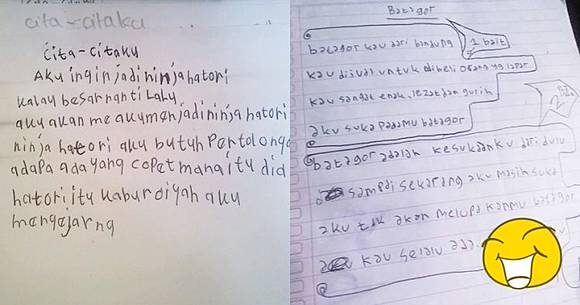 cita-citaku
Cita-citaku
Aku ingin jadi ninja hatori
kalau besar nanti Lalu
aku akan me akumenjadi ninja hatori
ninja hatori aku butuh Pertolonga
adapa ada yang copet mana itu did
hatori itu kabur oiyah aku
mengejarng
Batagor
batagor kau dari bandung
1 bait
kau dijual untuk dibeli orang yg lapar
kau sangat enak, lezat dan gurih
aku suka padamu batagor
2 bait
batagor adalah kesukaanku dari dulu
sampai sekarang aku masih suka
aku tak akan melupakanmu batagor
kau selalu ada